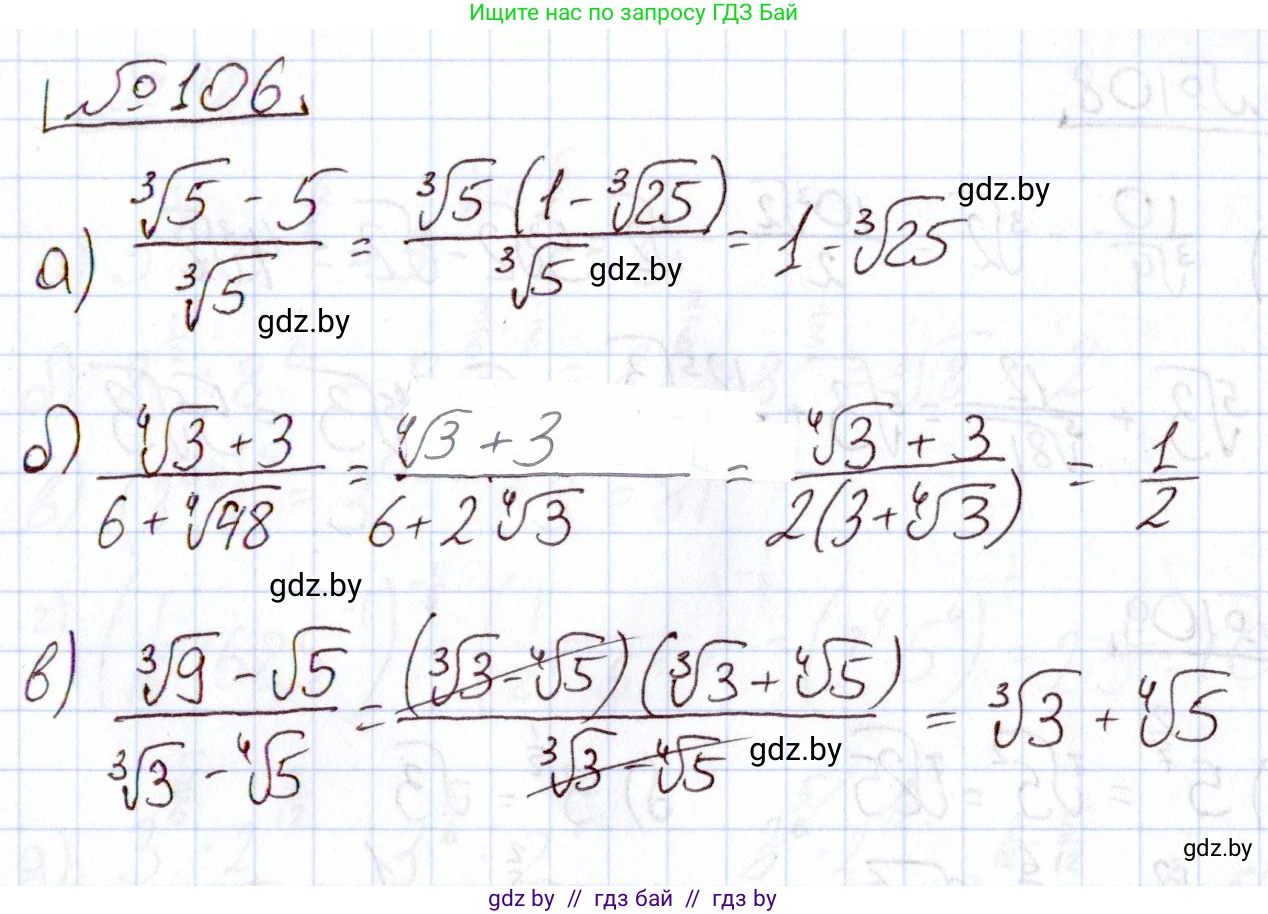 Ищите нас по запросу ГДЗ Бай
№106
а) (∛5 - 5)/∛5 = ∛5 (1 - ∛25)/∛5 = 1 - ∛25
gdz.by
gdz.by
gdz.by
б) (∜3 + 3)/(6 + ∜48) = (∜3 + 3)/(6 + 2∜3) = (∜3 + 3)/(2(3 + ∜3)) = 1/2
gdz.by
в) (∛9 - √5)/(∛3 - ∜5) = (∛3 - ∜5)(∛3 + ∜5)/(∛3 - ∜5) = ∛3 + ∜5
gdz.by
gdz.by
gdz by // гдз бай // гдз by